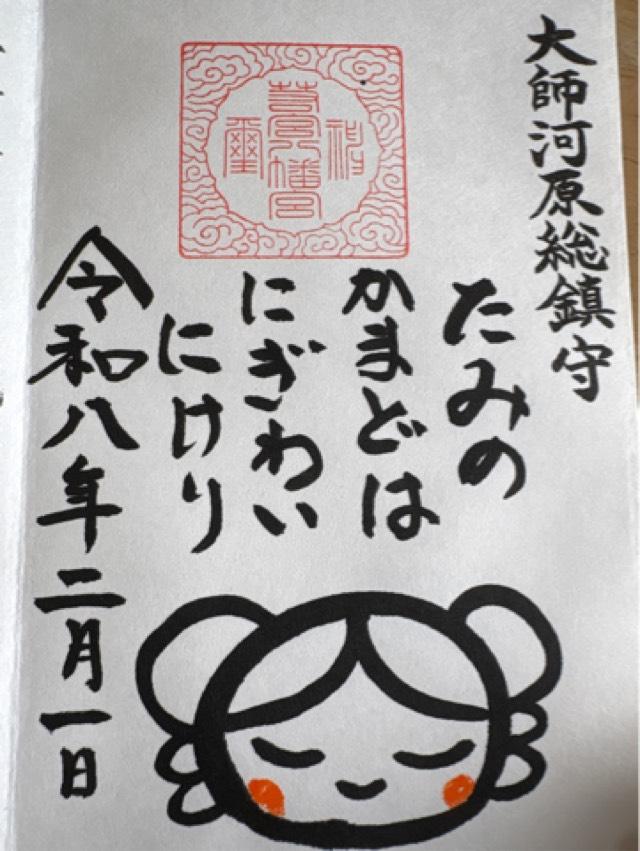 大師河原総鎮守
たみの
かまどは
にぎわい
にけり
令和八年二月一日